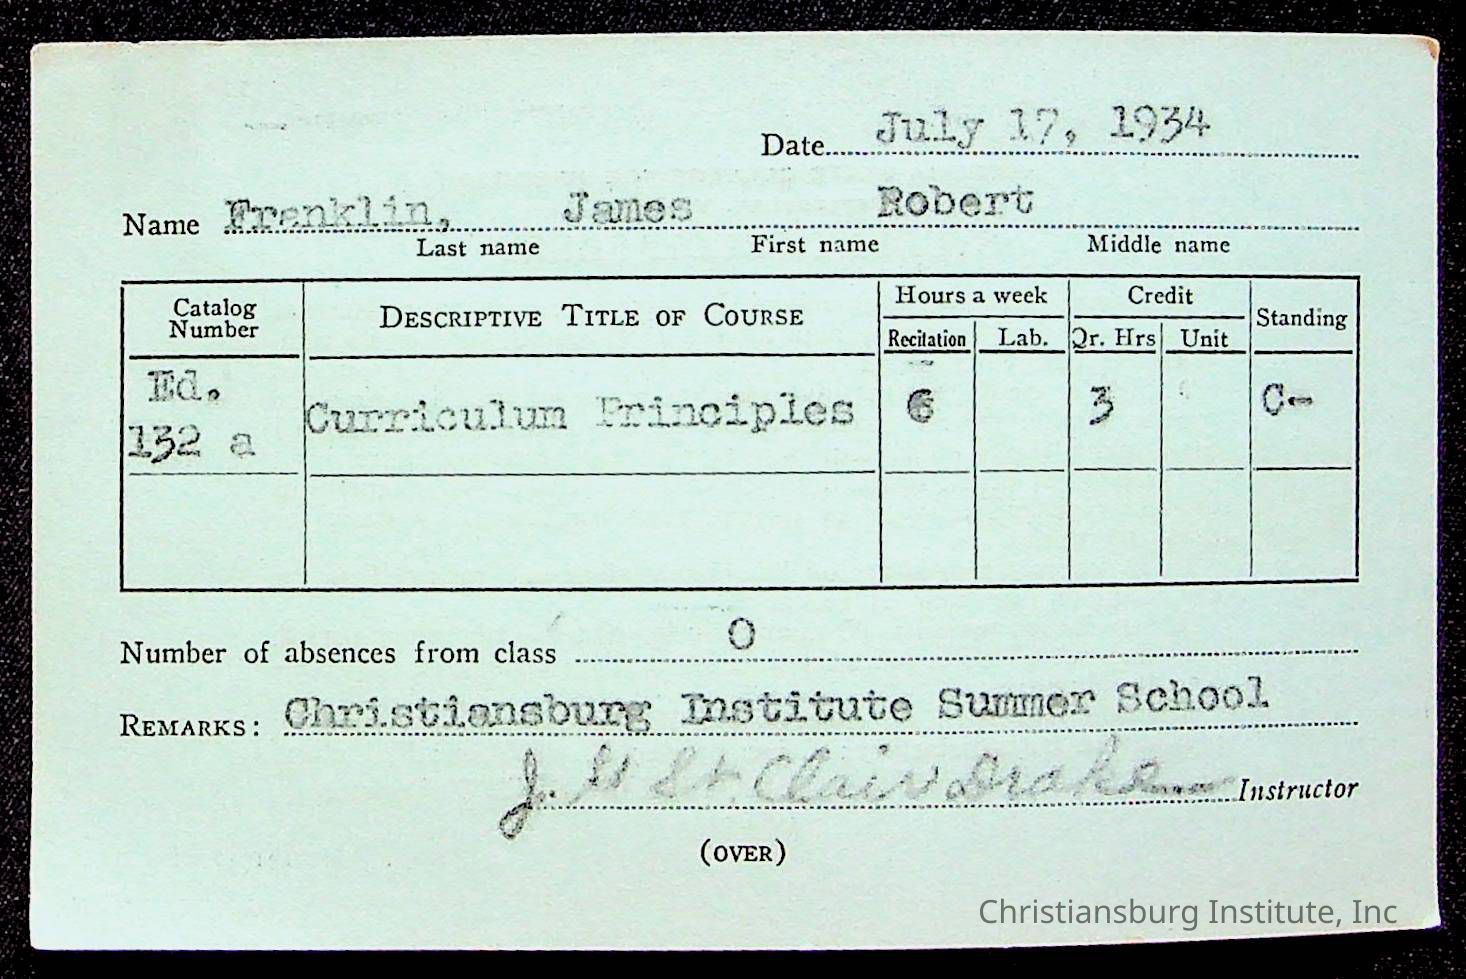 Date July 17, 1934
Name Franklin, James Robert
Last name First name Middle name
Catalog Number DESCRIPTIVE TITLE OF COURSE Hours a week Credit Standing
Recitation Lab. Qr. Hrs Unit
Ed. 132 a Curriculum Principles 6 3 C-
Number of absences from class 0
REMARKS: Christiansburg Institute Summer School
J. G. St. Clair Drake Instructor
(OVER)
Christiansburg Institute, Inc